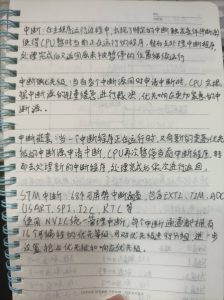 中断：在主程序运行过程中，出现了特定的中断触发条件(中断源)
使得CPU暂停当前正在运行的程序，转而去处理中断程序
处理完成后又返回原来被暂停的位置继续运行
中断优先级：当有多个中断源同时申请中断时，CPU会根
据中断源的轻重缓急进行裁决，优先响应更加紧急的中
断源。
中断嵌套：当一个中断程序正在运行时，又有新的更高优先
级的中断源申请中断，CPU再次暂停当前中断程序，转
而去处理新的中断程序，处理完成后依次进行返回。
STM中断：68个可屏蔽中断通道，包含EXTI、TIM、ADC
USART、SPI、I2C、RTC等
使用NVIC统一管理中断，每个中断通道都拥有
16个可编程的优先等级，可对优先级进行分组，进一步
设置抢占优先级和响应优先级。